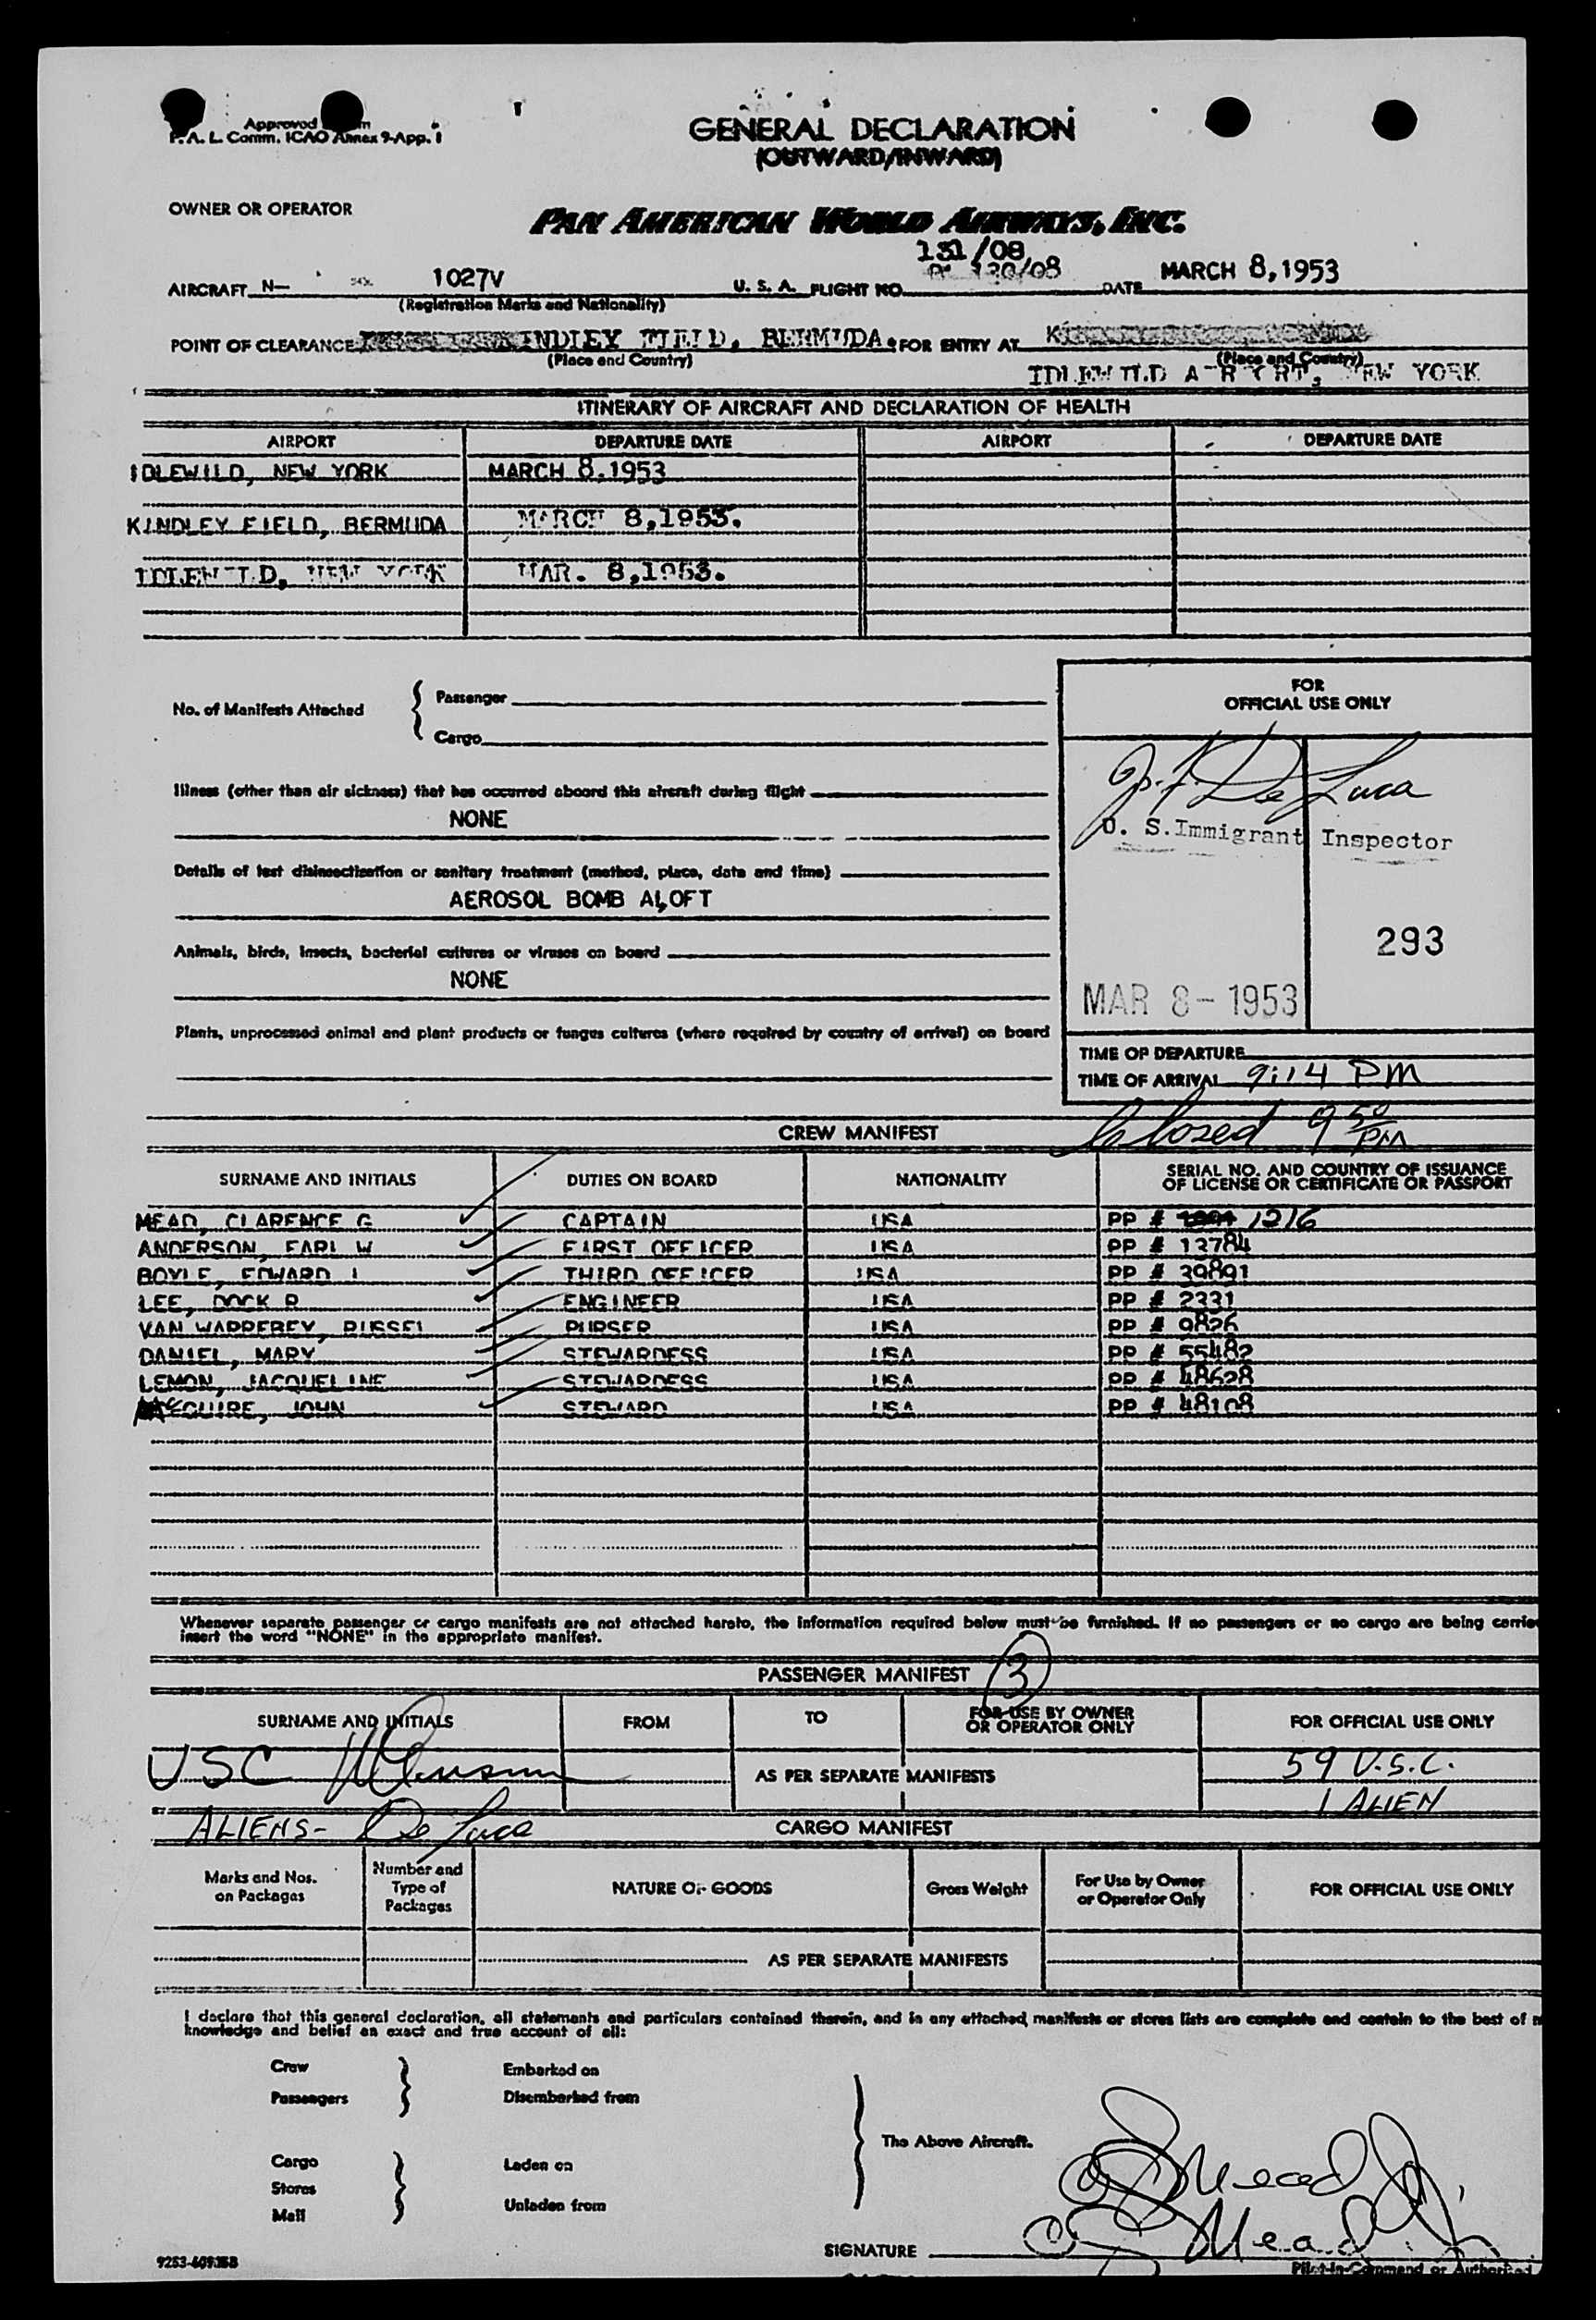 Approved
P. A. L. Comm. ICAO Annex 9-App. 1
GENERAL DECLARATION
(OUTWARD/INWARD)
OWNER OR OPERATOR
PAN AMERICAN WORLD AIRWAYS, INC.
131/08
130/08
AIRCRAFT N- 1027V U. S. A. FLIGHT NO. DATE MARCH 8,1953
(Registration Marks and Nationality)
POINT OF CLEARANCE KINDLEY FIELD, BERMUDA. FOR ENTRY AT
(Place and Country) (Place and Country)
IDLEWILD AIRPORT, NEW YORK
ITINERARY OF AIRCRAFT AND DECLARATION OF HEALTH
AIRPORT DEPARTURE DATE AIRPORT DEPARTURE DATE
IDLEWILD, NEW YORK MARCH 8,1953
KINDLEY FIELD, BERMUDA MARCH 8,1953.
IDLEWILD, NEW YORK MAR. 8,1953.
No. of Manifests Attached
Passenger
Cargo
FOR
OFFICIAL USE ONLY
Illness (other than air sickness) that has occurred aboard this aircraft during flight
NONE
De Luca
U. S. Immigrant Inspector
Details of last disinsectization or sanitary treatment (method, place, date and time)
AEROSOL BOMB ALOFT
293
Animals, birds, insects, bacterial cultures or viruses on board
NONE
MAR 8- 1953
Plants, unprocessed animal and plant products or fungus cultures (where required by country of arrival) on board
TIME OF DEPARTURE
TIME OF ARRIVAL 9:14 PM
Closed 9 50 PM
CREW MANIFEST
SURNAME AND INITIALS DUTIES ON BOARD NATIONALITY SERIAL NO. AND COUNTRY OF ISSUANCE
OF LICENSE OR CERTIFICATE OR PASSPORT
MEAD, CLARENCE G CAPTAIN USA PP # 1216
ANDERSON, EARL W FIRST OFFICER USA PP # 13784
BOYLE, EDWARD J THIRD OFFICER USA PP # 39891
LEE, DOCK R ENGINEER USA PP # 2331
VAN WARREBEY, RUSSEL PURSER USA PP # 9826
DANIEL, MARY STEWARDESS USA PP # 55482
LEMON, JACQUELINE STEWARDESS USA PP # 48628
McGUIRE, JOHN STEWARD USA PP # 48108
Whenever separate passenger or cargo manifests are not attached hereto, the information required below must be furnished. If no passengers or no cargo are being carried
insert the word "NONE" in the appropriate manifest.
PASSENGER MANIFEST 3
SURNAME AND INITIALS FROM TO FOR USE BY OWNER
OR OPERATOR ONLY FOR OFFICIAL USE ONLY
USC AS PER SEPARATE MANIFESTS 59 U.S.C.
1 ALIEN
ALIENS- De Luca
CARGO MANIFEST
Marks and Nos.
on Packages
Number and
Type of
Packages
NATURE OF GOODS
Gross Weight
For Use by Owner
or Operator Only
FOR OFFICIAL USE ONLY
AS PER SEPARATE MANIFESTS
I declare that this general declaration, all statements and particulars contained therein, and in any attached manifests or stores lists are complete and contain to the best of
knowledge and belief an exact and true account of all:
Crew Embarked on
Passengers Disembarked from
The Above Aircraft.
Cargo Laden on
Stores
Mail Unladen from
Mead Jr.
SIGNATURE Mead Jr.
Pilot-in-Command or Authorized